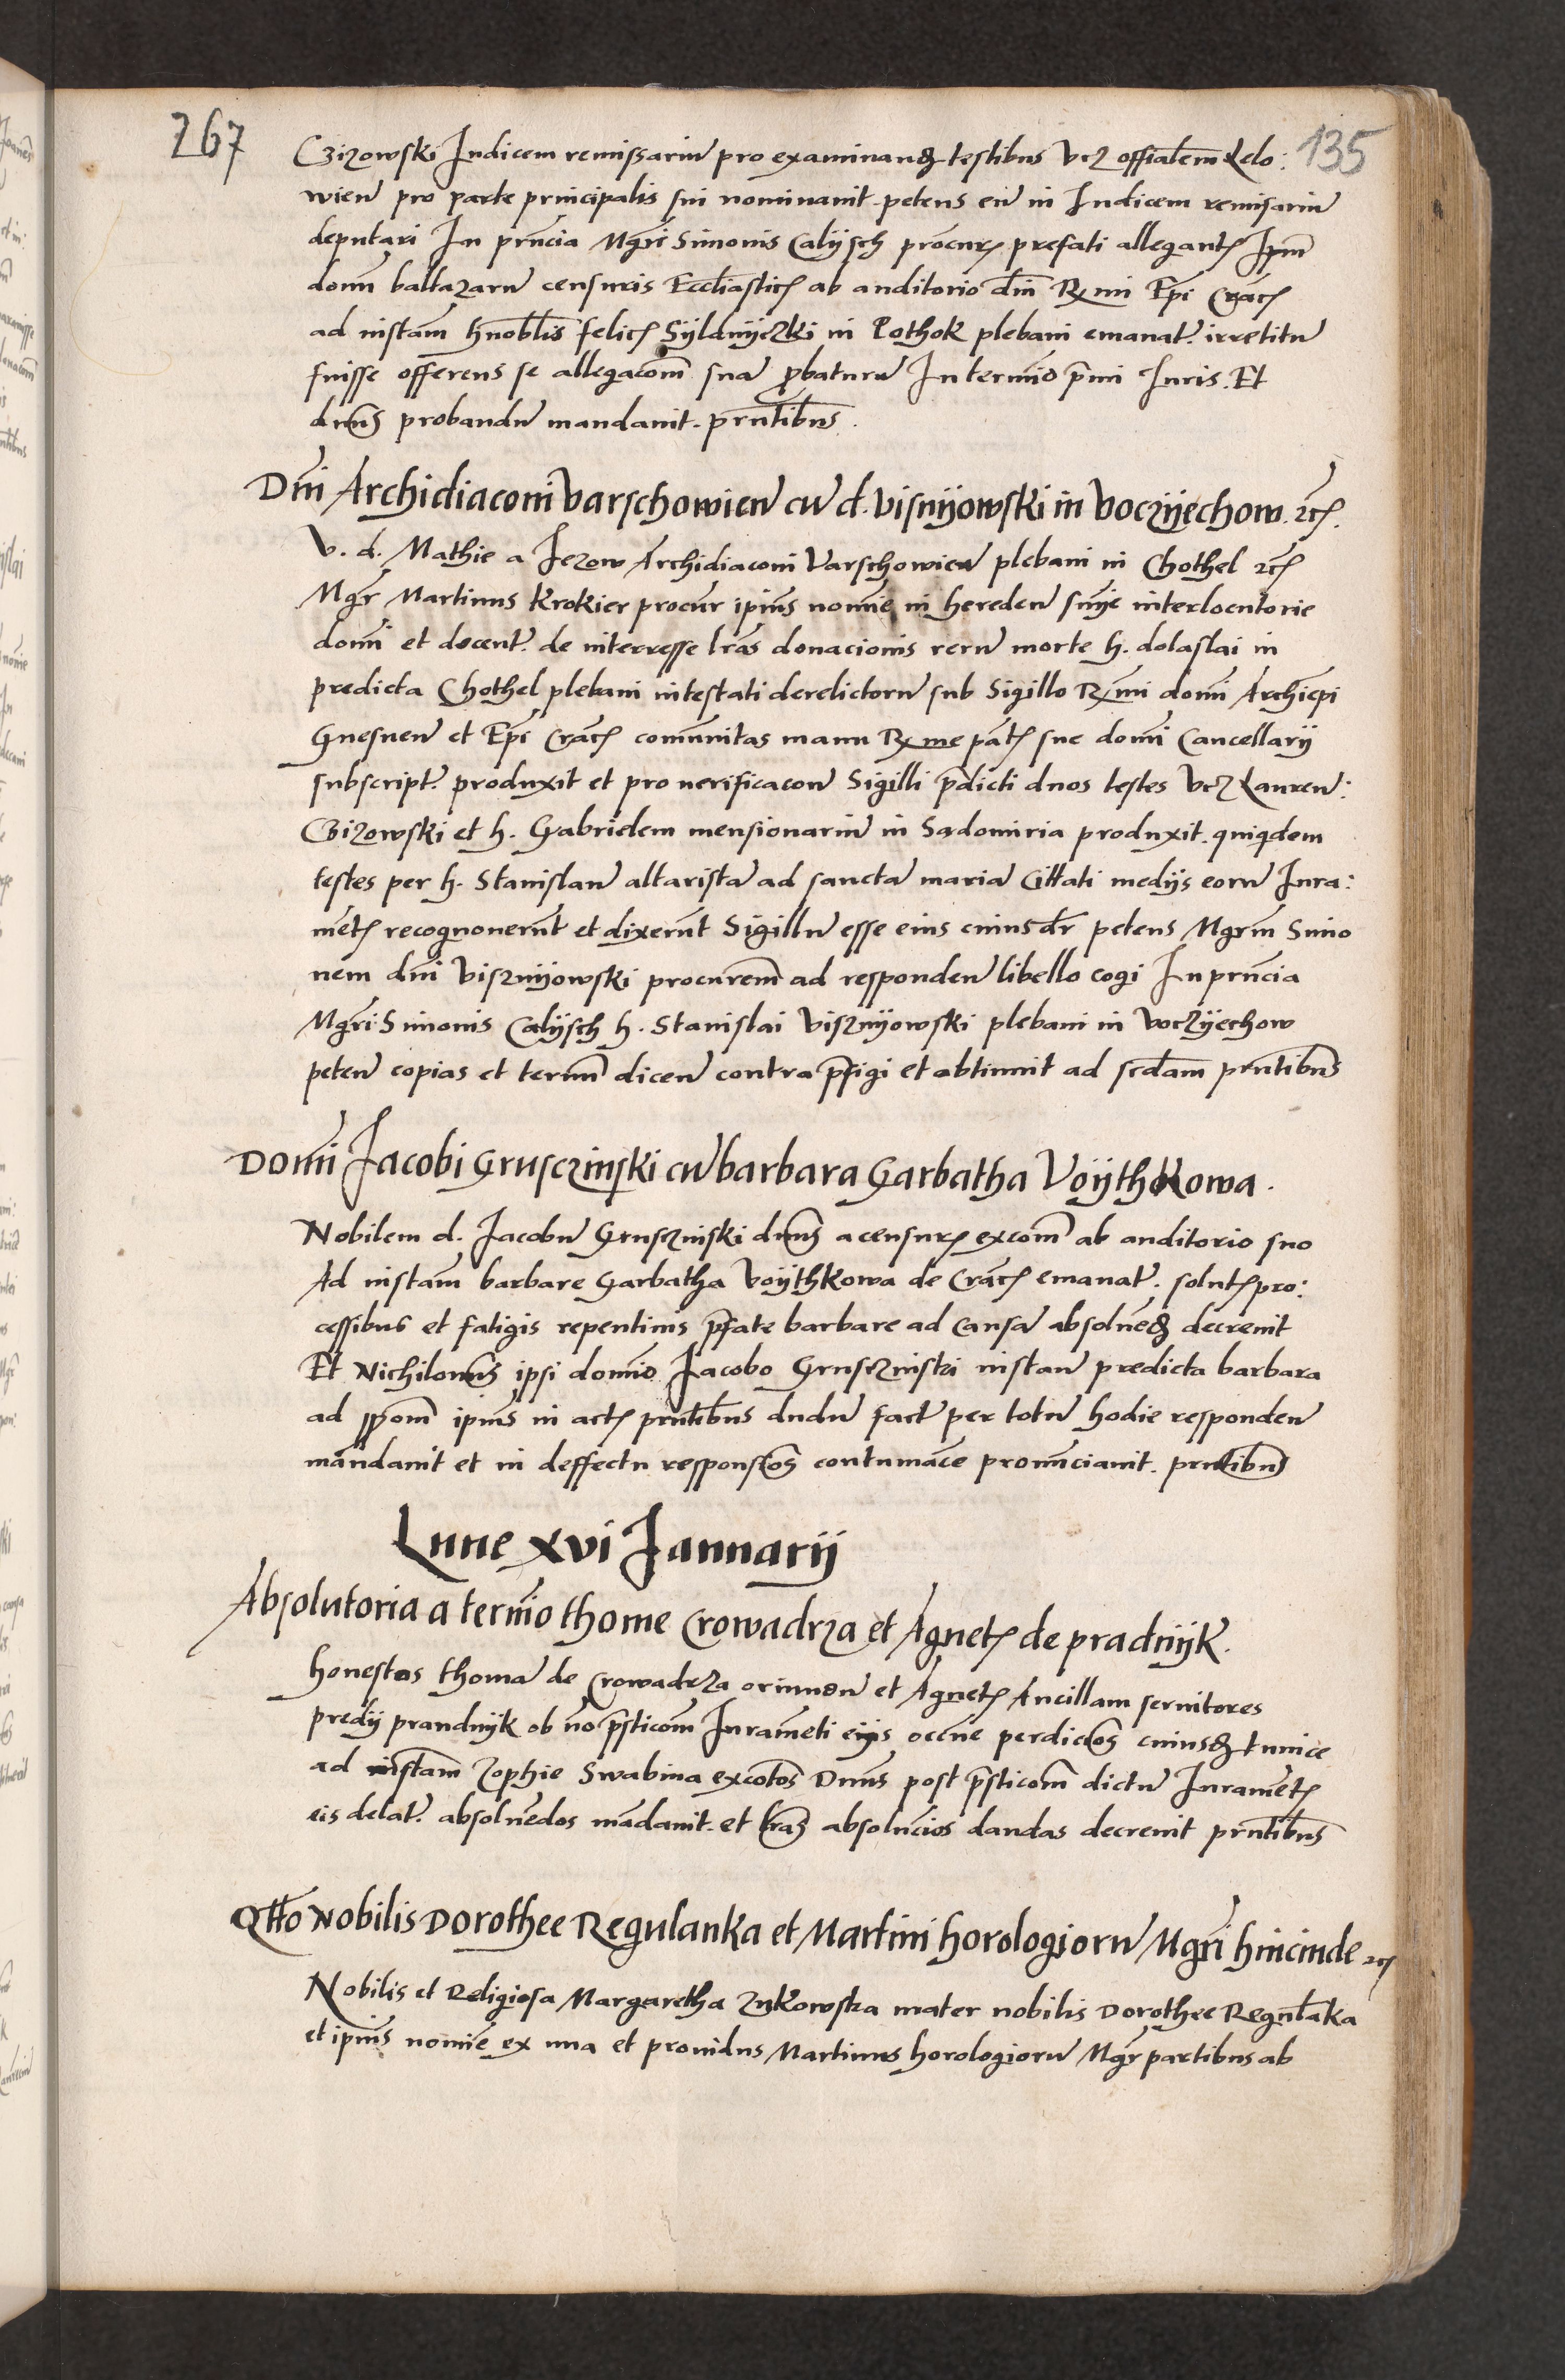 267
135
Czizowski Judicem remissariu pro examinan testibus vcz offialem Lelo:
wien pro parte principalis sui nominauit petens eu in Judicem remisariu
deputari In prncia Mgri Simonis Calijsch procur prefati allegant Ipm
domn baltazaru censuris Eccliastic ab auditorio dni Rmi Epi Crac
ad instam hnoblis felic Sijldnijczki in Pothok plebani emanat irretitu
fuisse offerens se allegacom sua probaturu In termio primi Juris. Et
dnus probandu mandauit. prntibus.
Dni Archidiaconi Varschowien cu d. Visnijowski in Voczijechow. etc.
V. d. Mathie a Jezow Archidiaconi Varschowien plebani in Chothel etc
Mgr Martinus Krokier procur ipius nomine in hereden snije interlocutorie
domi et docent de interresse lras donacionis reru morte h. dolaslai in
predicta Chothel plebani intestati derelictoru sub Sigillo Rmi domi Archiepi
Gnesnen et Epi Crac comunitas manu Rme pat sue domi Cancellarij
subscript produxit et pro uerificacon Sigilli pdicti duos testes vcz Lauren:
Czizowski et h. Gabrielem mensionariu in Sadomiria produxit. quiqdem
testes per h. Stanislau altarista ad sancta maria Cittati medijs eoru Jura:
met recognouerut et dixerunt Sigillu esse eius cuius dr petens Mgrm Simo
nem dni Visznijowski procurem ad responden libello cogi In prncia
Mgri Simonis Calijsch h. Stanislai Visznijowski plebani in Voczijechow
peten copias et termn dicen contra pfigi et abtinuit ad scdam prntibus
Domi Jacobi Grusczinski cu barbara Garbatha Voijthkowa.
Nobilem d. Jacobu Grusczinski dnus a censur excom ab auditorio suo
Ad instam barbare Garbatha Voijthkowa de Crac emanat. solut pro:
cessibus et fatigis repentinis pfate barbare ad Causa absoluend decreuit
Et Nichilomus ipsi domio Jacobo Grusczinski instan predicta barbara
ad ppom ipius in act prntibus dudu fact per totu hodie responden
mandauit et in deffectu responscos contumace pronunciauit. prntibus
Lune xvi Januarij
Absolutoria a termio thome Crowadrza et Agnet de pradnijk.
honestos thoma de Crowadrza oriundu et Agnet Ancillam seruitores
predij prandnijk ob no psticom Jurameti eijs occne perdicos cuiusd tunice
ad instam Zophie Swabina excotos Dnus post psticom dictu Jurament
eis delat. absoluedos madauit. et lras absolucios dandas decreuit prntibus
Qtto Nobilis Dorothee Regulanka et Martini horologioru Mgri hincinde etc
Nobilis et Religiosa Margaretha Zukowska mater nobilis Dorothee Regulaka
et ipius nomie ex una et prouidus Martinus horologioru Mgr partibus ab